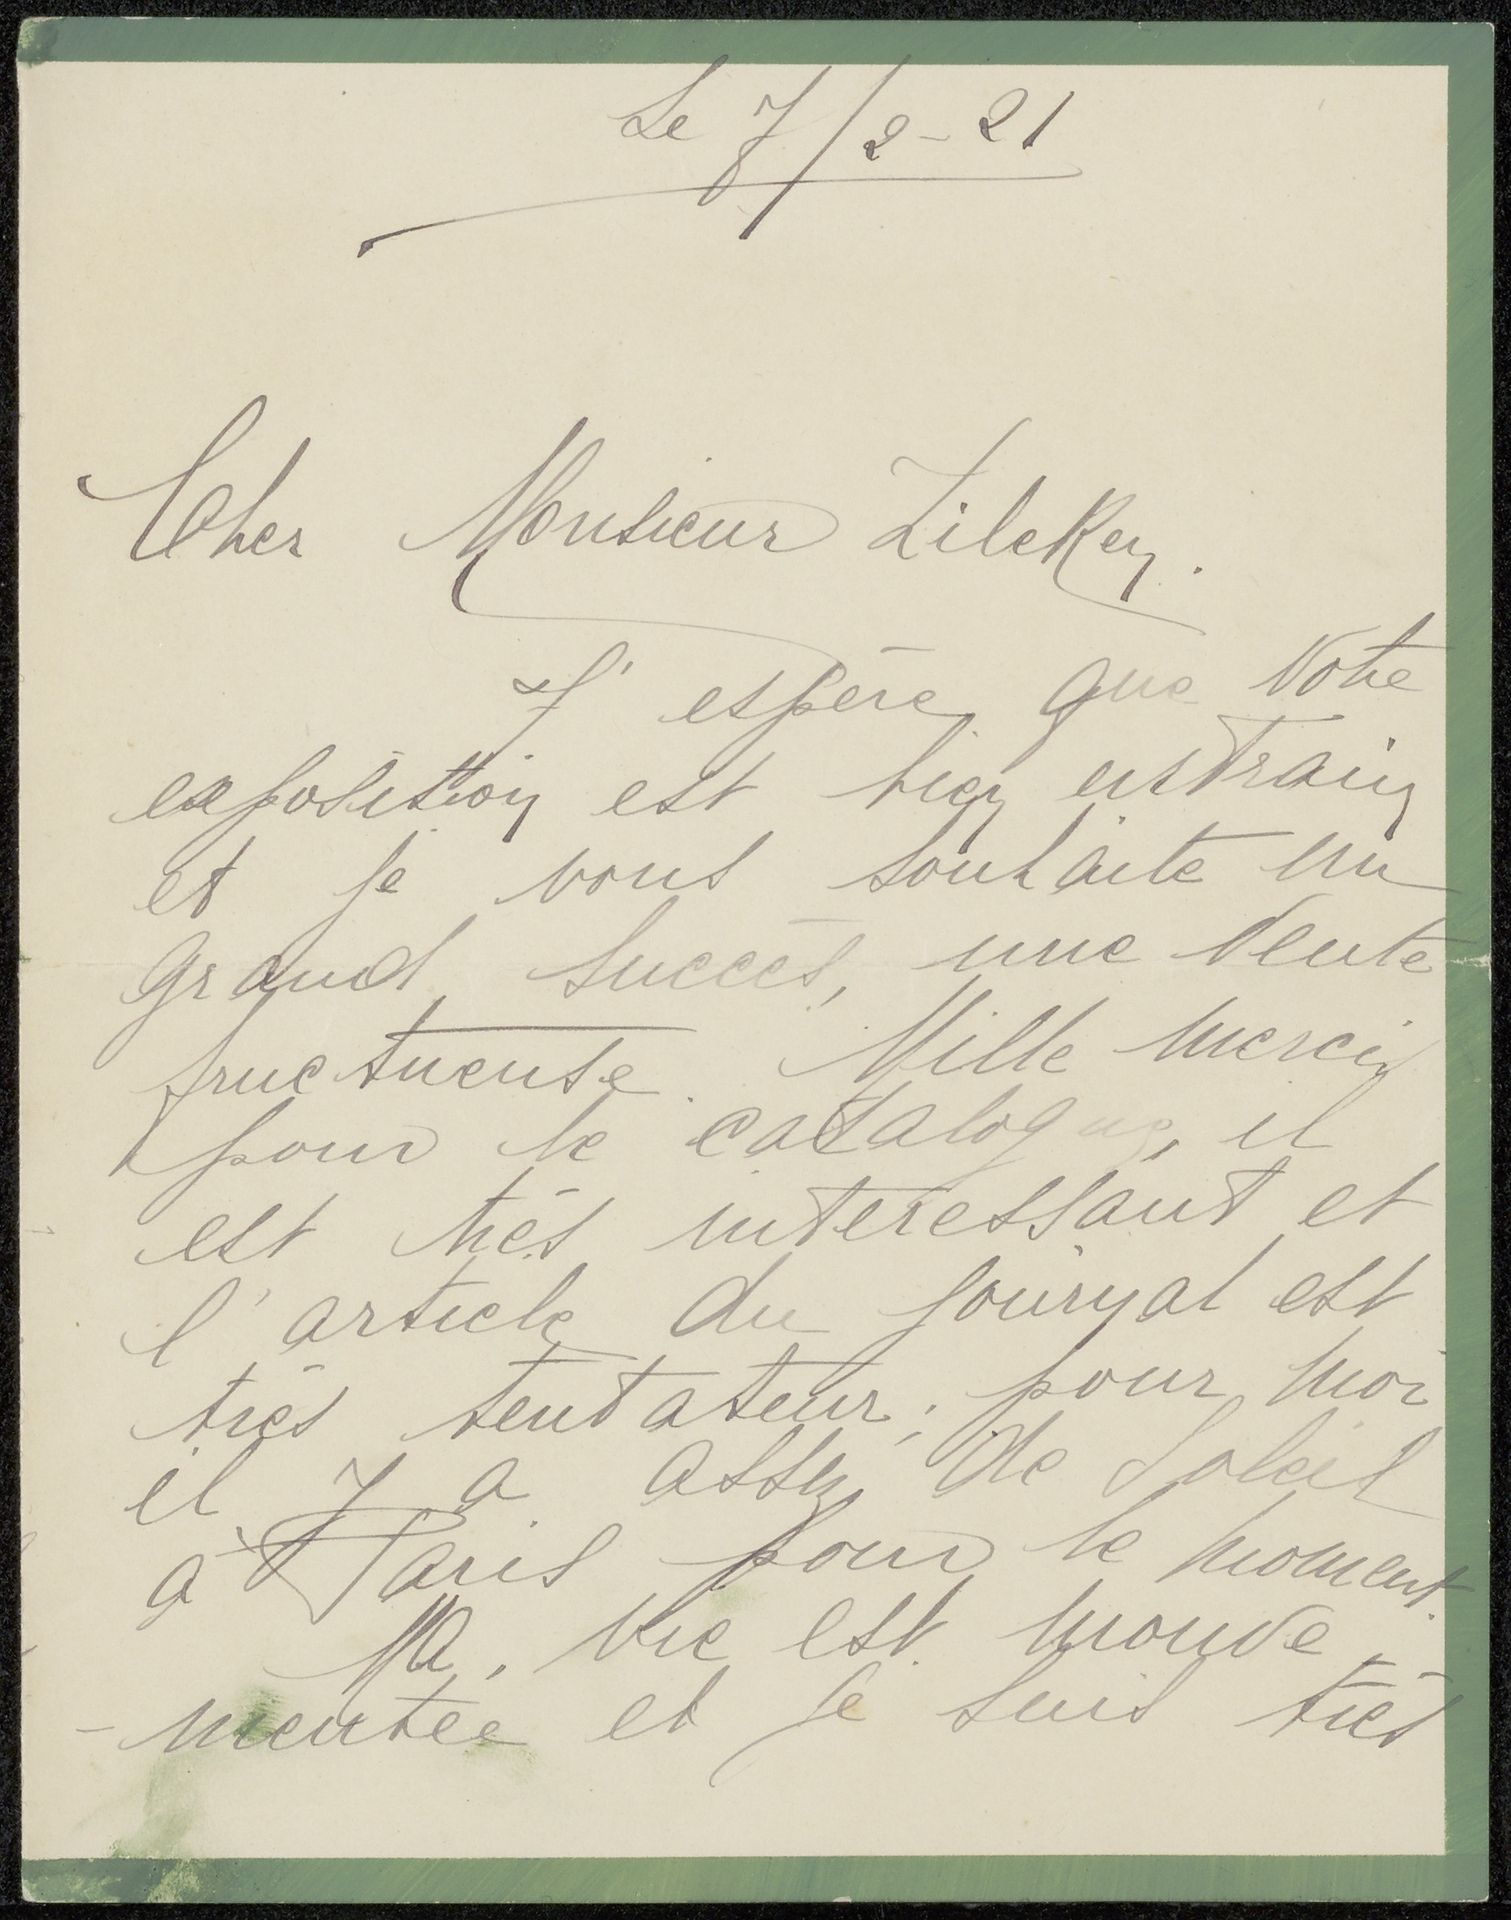 Le 7/2-21
Cher Monsieur Zilcken.
J'espère que votre
exposition est bien en train
et je vous souhaite un
grand succès, une vente
fructueuse. Mille mercis
pour le catalogue, il
est très interessant et
l'article du journal est
très tentateur; pour moi
il y a assez de soleil
à Paris pour le moment.
Ma vie est mouve
-mentée et je suis très